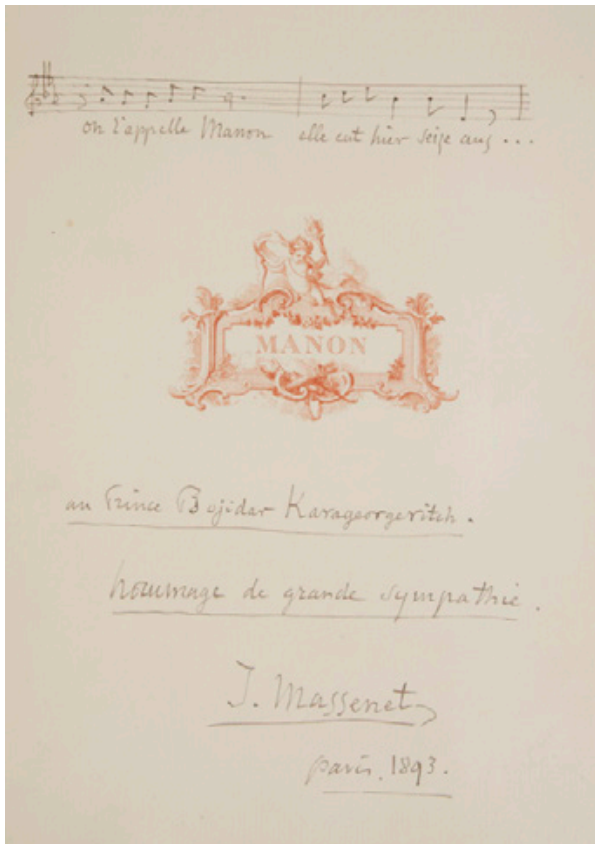 on l'appelle Manon elle eut hier seize ans...
MANON
au Prince Bojidar Karageorgevitch.
hommage de grande sympathie.
J. Massenet
Paris. 1893.